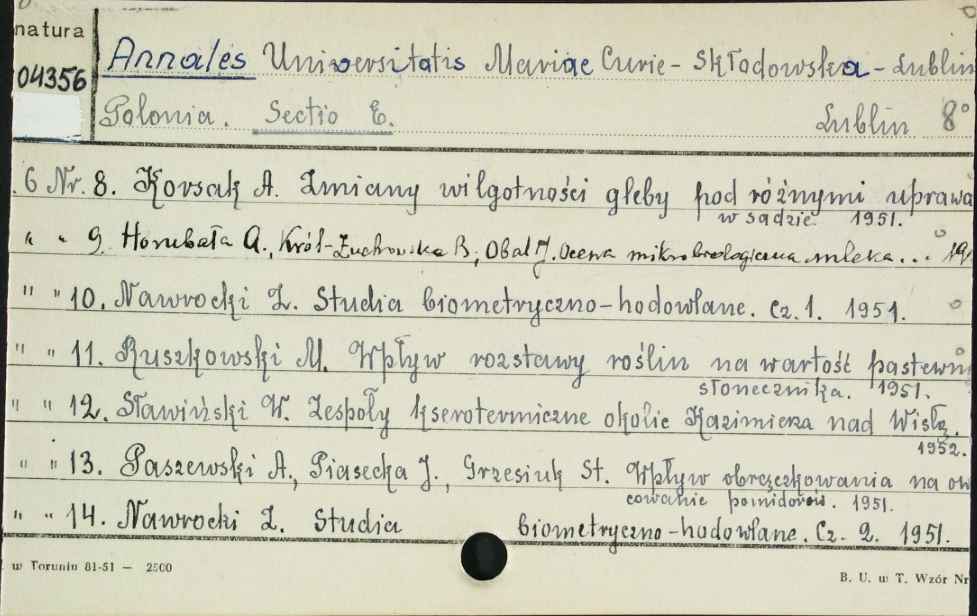 natura
04356
Annales Universitatis Mariae Curie-Skłodowska-Lublin
Polonia. Sectio E. Lublin 8°
. 6 Nr. 8. Korsak A. Zmiany wilgotności gleby pod różnymi uprawa
w sądzie 1951.
" " 9. Horubała A., Król-Żuchowska B., Obal J. Ocena mikrobiologiczna mleka... 19
" " 10. Nawrocki Z. Studia biometryczno-hodowlane. Cz. 1. 1951.
" " 11. Ruszkowski M. Wpływ rozstawy roślin na wartość pastewn
słonecznika. 1951.
" " 12. Sławiński W. Zespoły kserotermiczne okolic Kazimierza nad Wisłą.
1952.
" " 13. Paszewski A., Piasecka J., Grzesiuk St. Wpływ obrączkowania na ow
cowanie pomidorów. 1951.
" " 14. Nawrocki Z. Studia biometryczno-hodowlane. Cz. 2. 1951.
w Toruniu 81-51 — 2500
B. U. w T. Wzór Nr